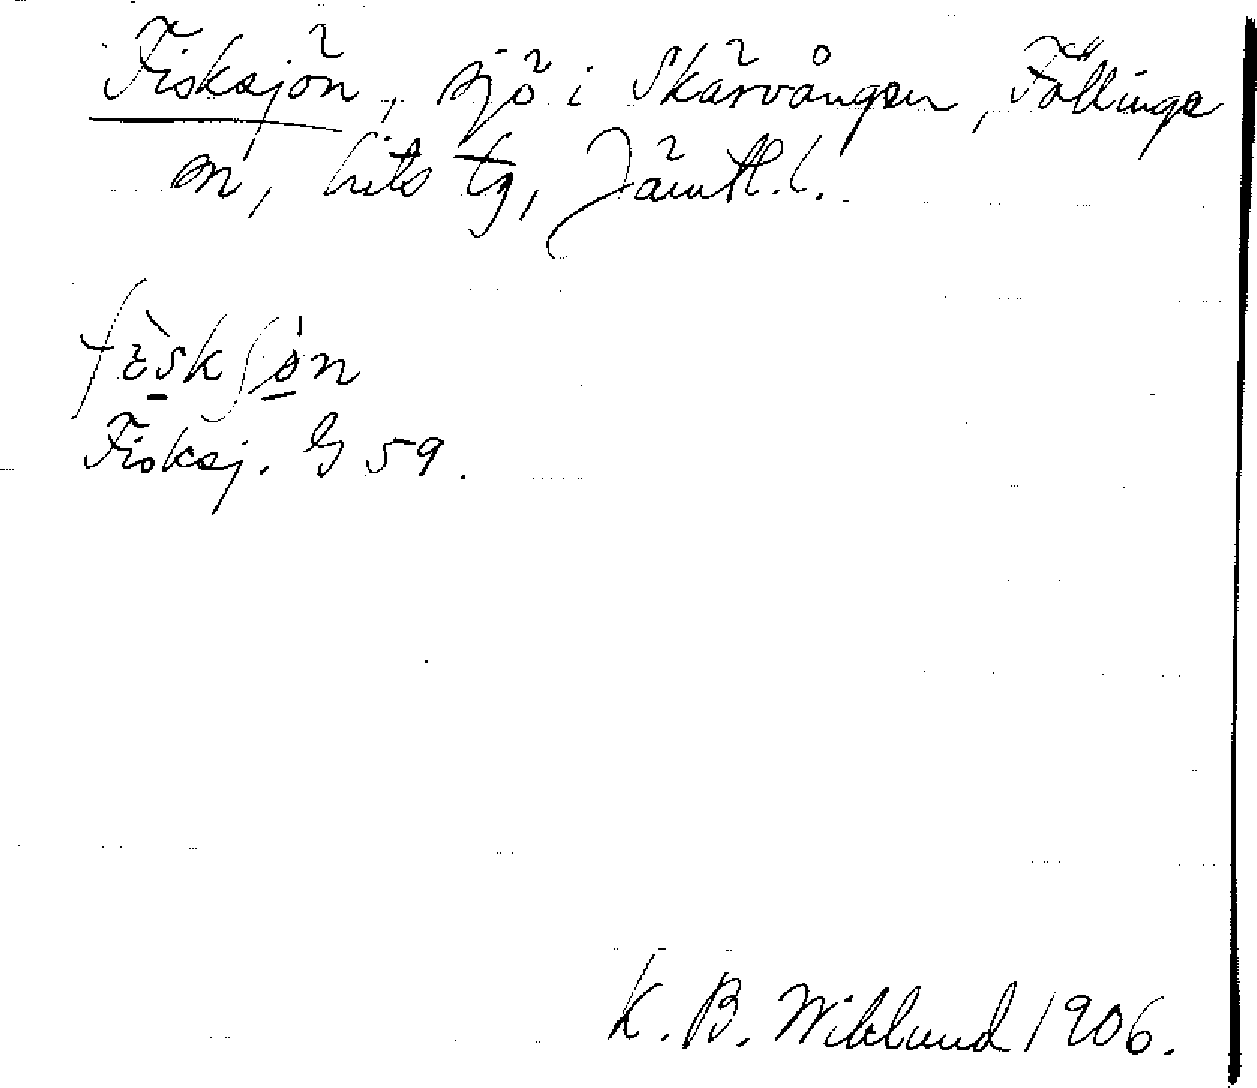 Fisksjön, sjö i Skärvången, Föllinge
sn, Lits tg, Jämtl. l.
Fisksj. G 59.
K. B. Wiklund 1906.